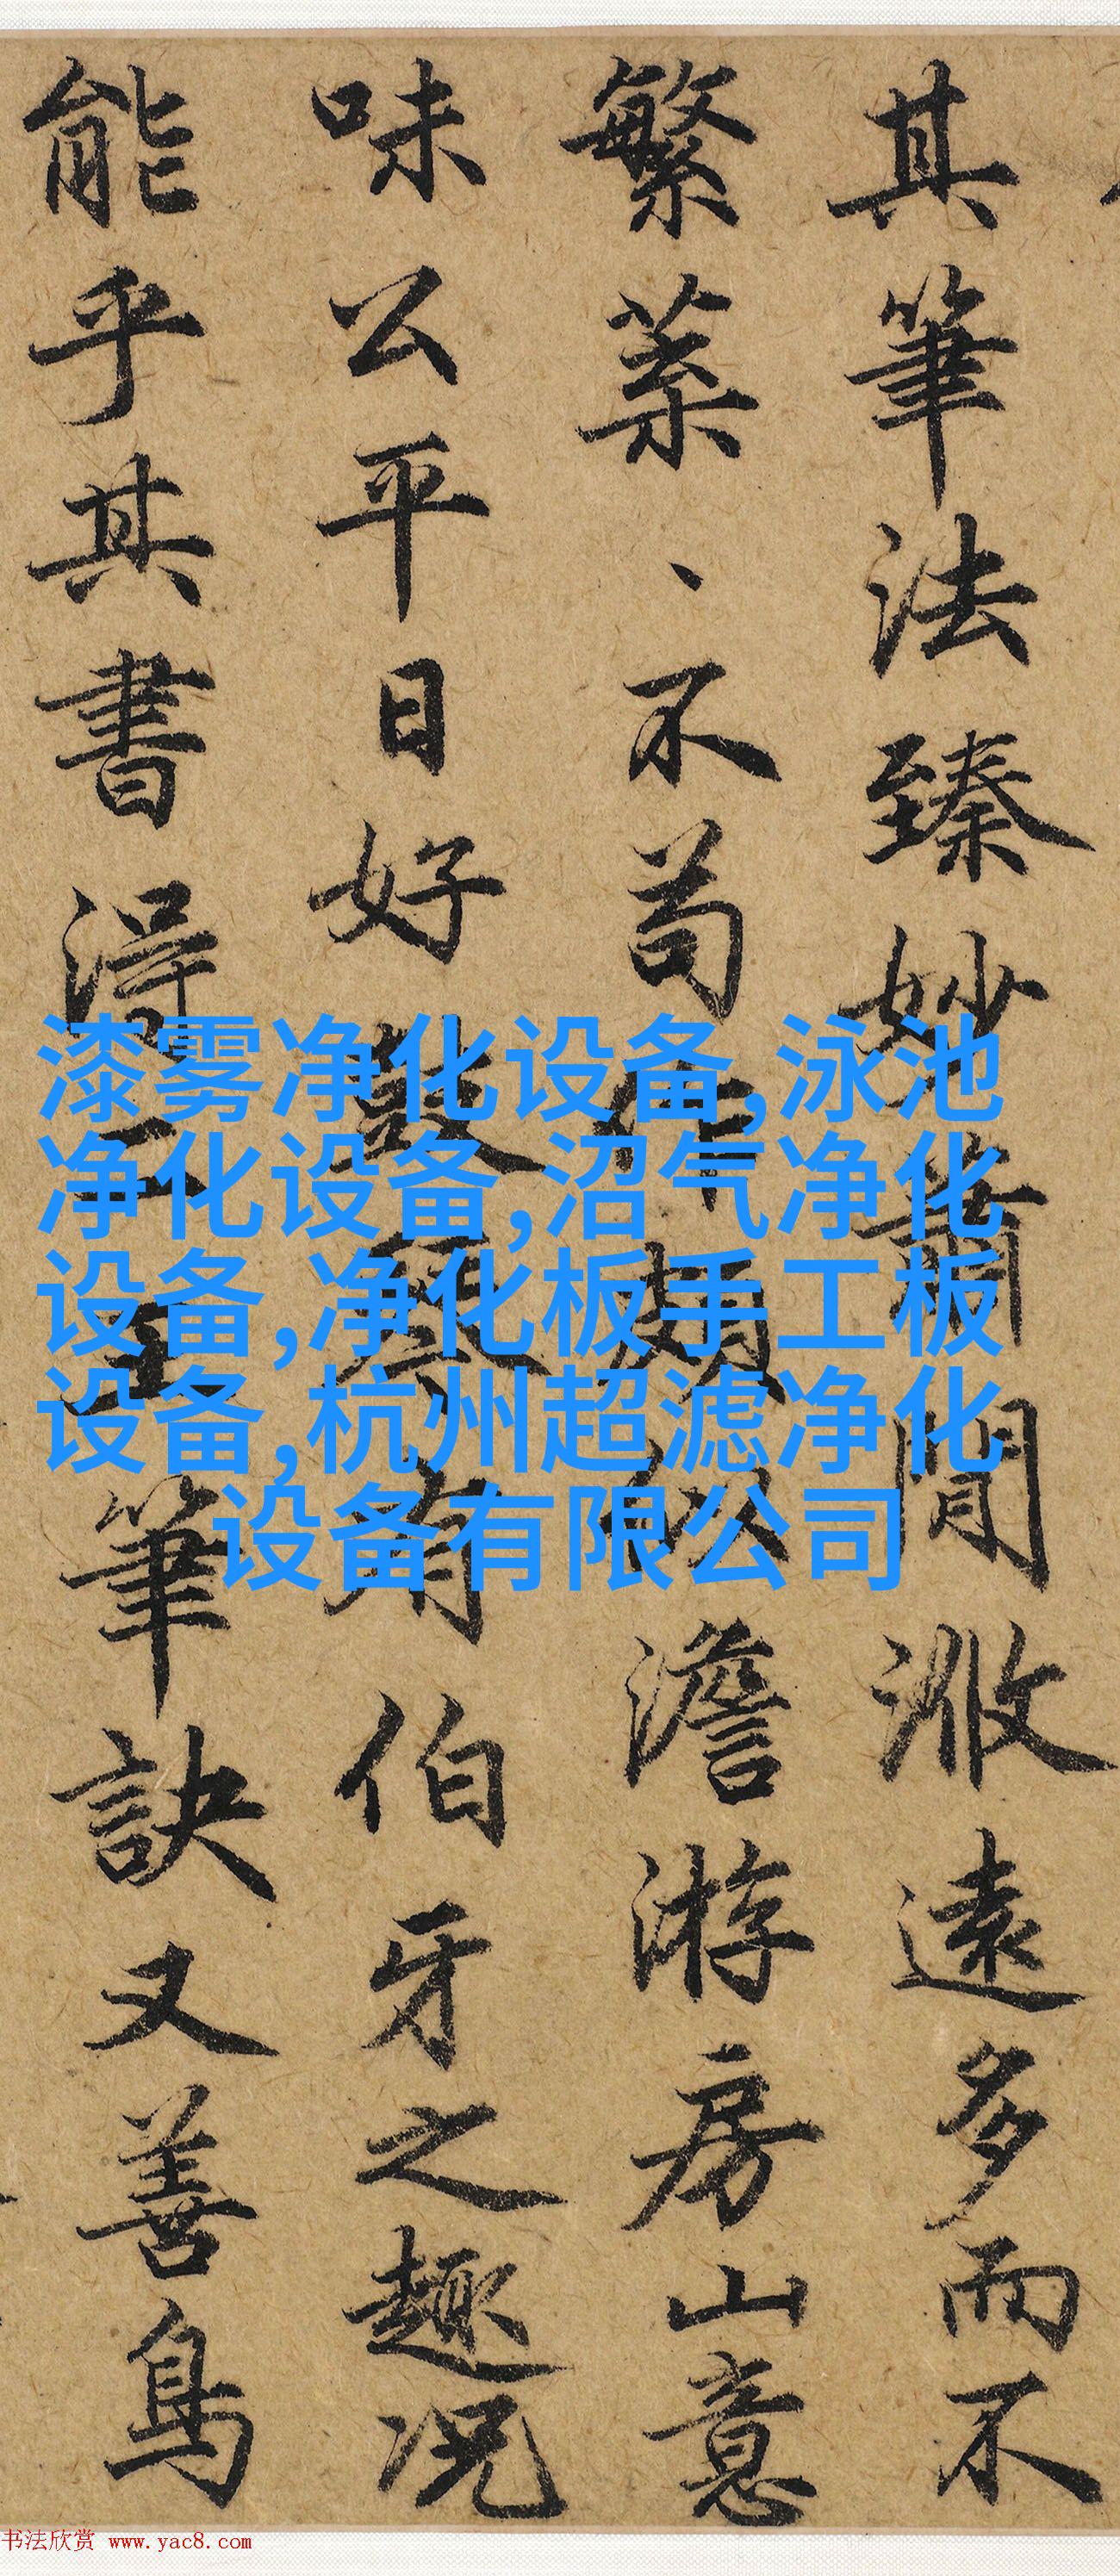 其筆法臻妙蕭閒遠多而不
繁不苟作頗似澹游房山意
味公平日好鼓琴有伯牙之趣况
能乎其書得二王筆訣又善鳥
漆雾净化设备,泳池
净化设备,沼气净化
设备,净化板手工板
设备,杭州超滤净化
设备有限公司
书法欣赏 www.yac8.com